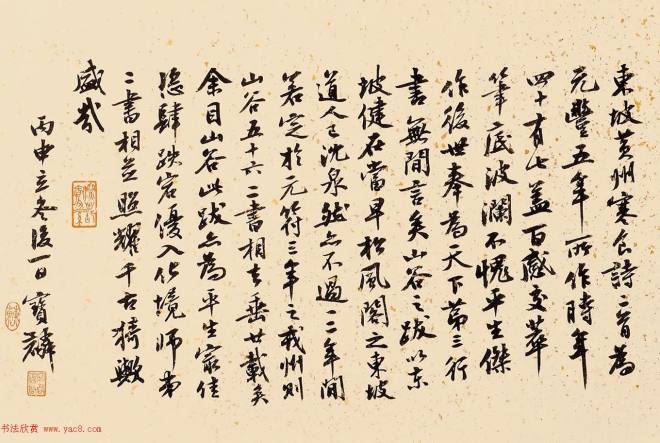 東坡黃州寒食詩二首為
元豐五年所作時年
四十有七蓋百感交萃
筆底波瀾不愧平生傑
作後世奉為天下第三行
書無間言矣山谷之跋以東
坡健在當早松風閣之東坡
道人已沈泉然亦不過一二年間
若定於元符三年之我州則
山谷五十六二書相去垂廿載矣
余目山谷此跋亦為平生最佳
恣肆跌宕優入化境師弟
二書相並照耀千古猗歟
盛哉
丙申立冬後一日寶麟
书法欣赏 www.yac8.com